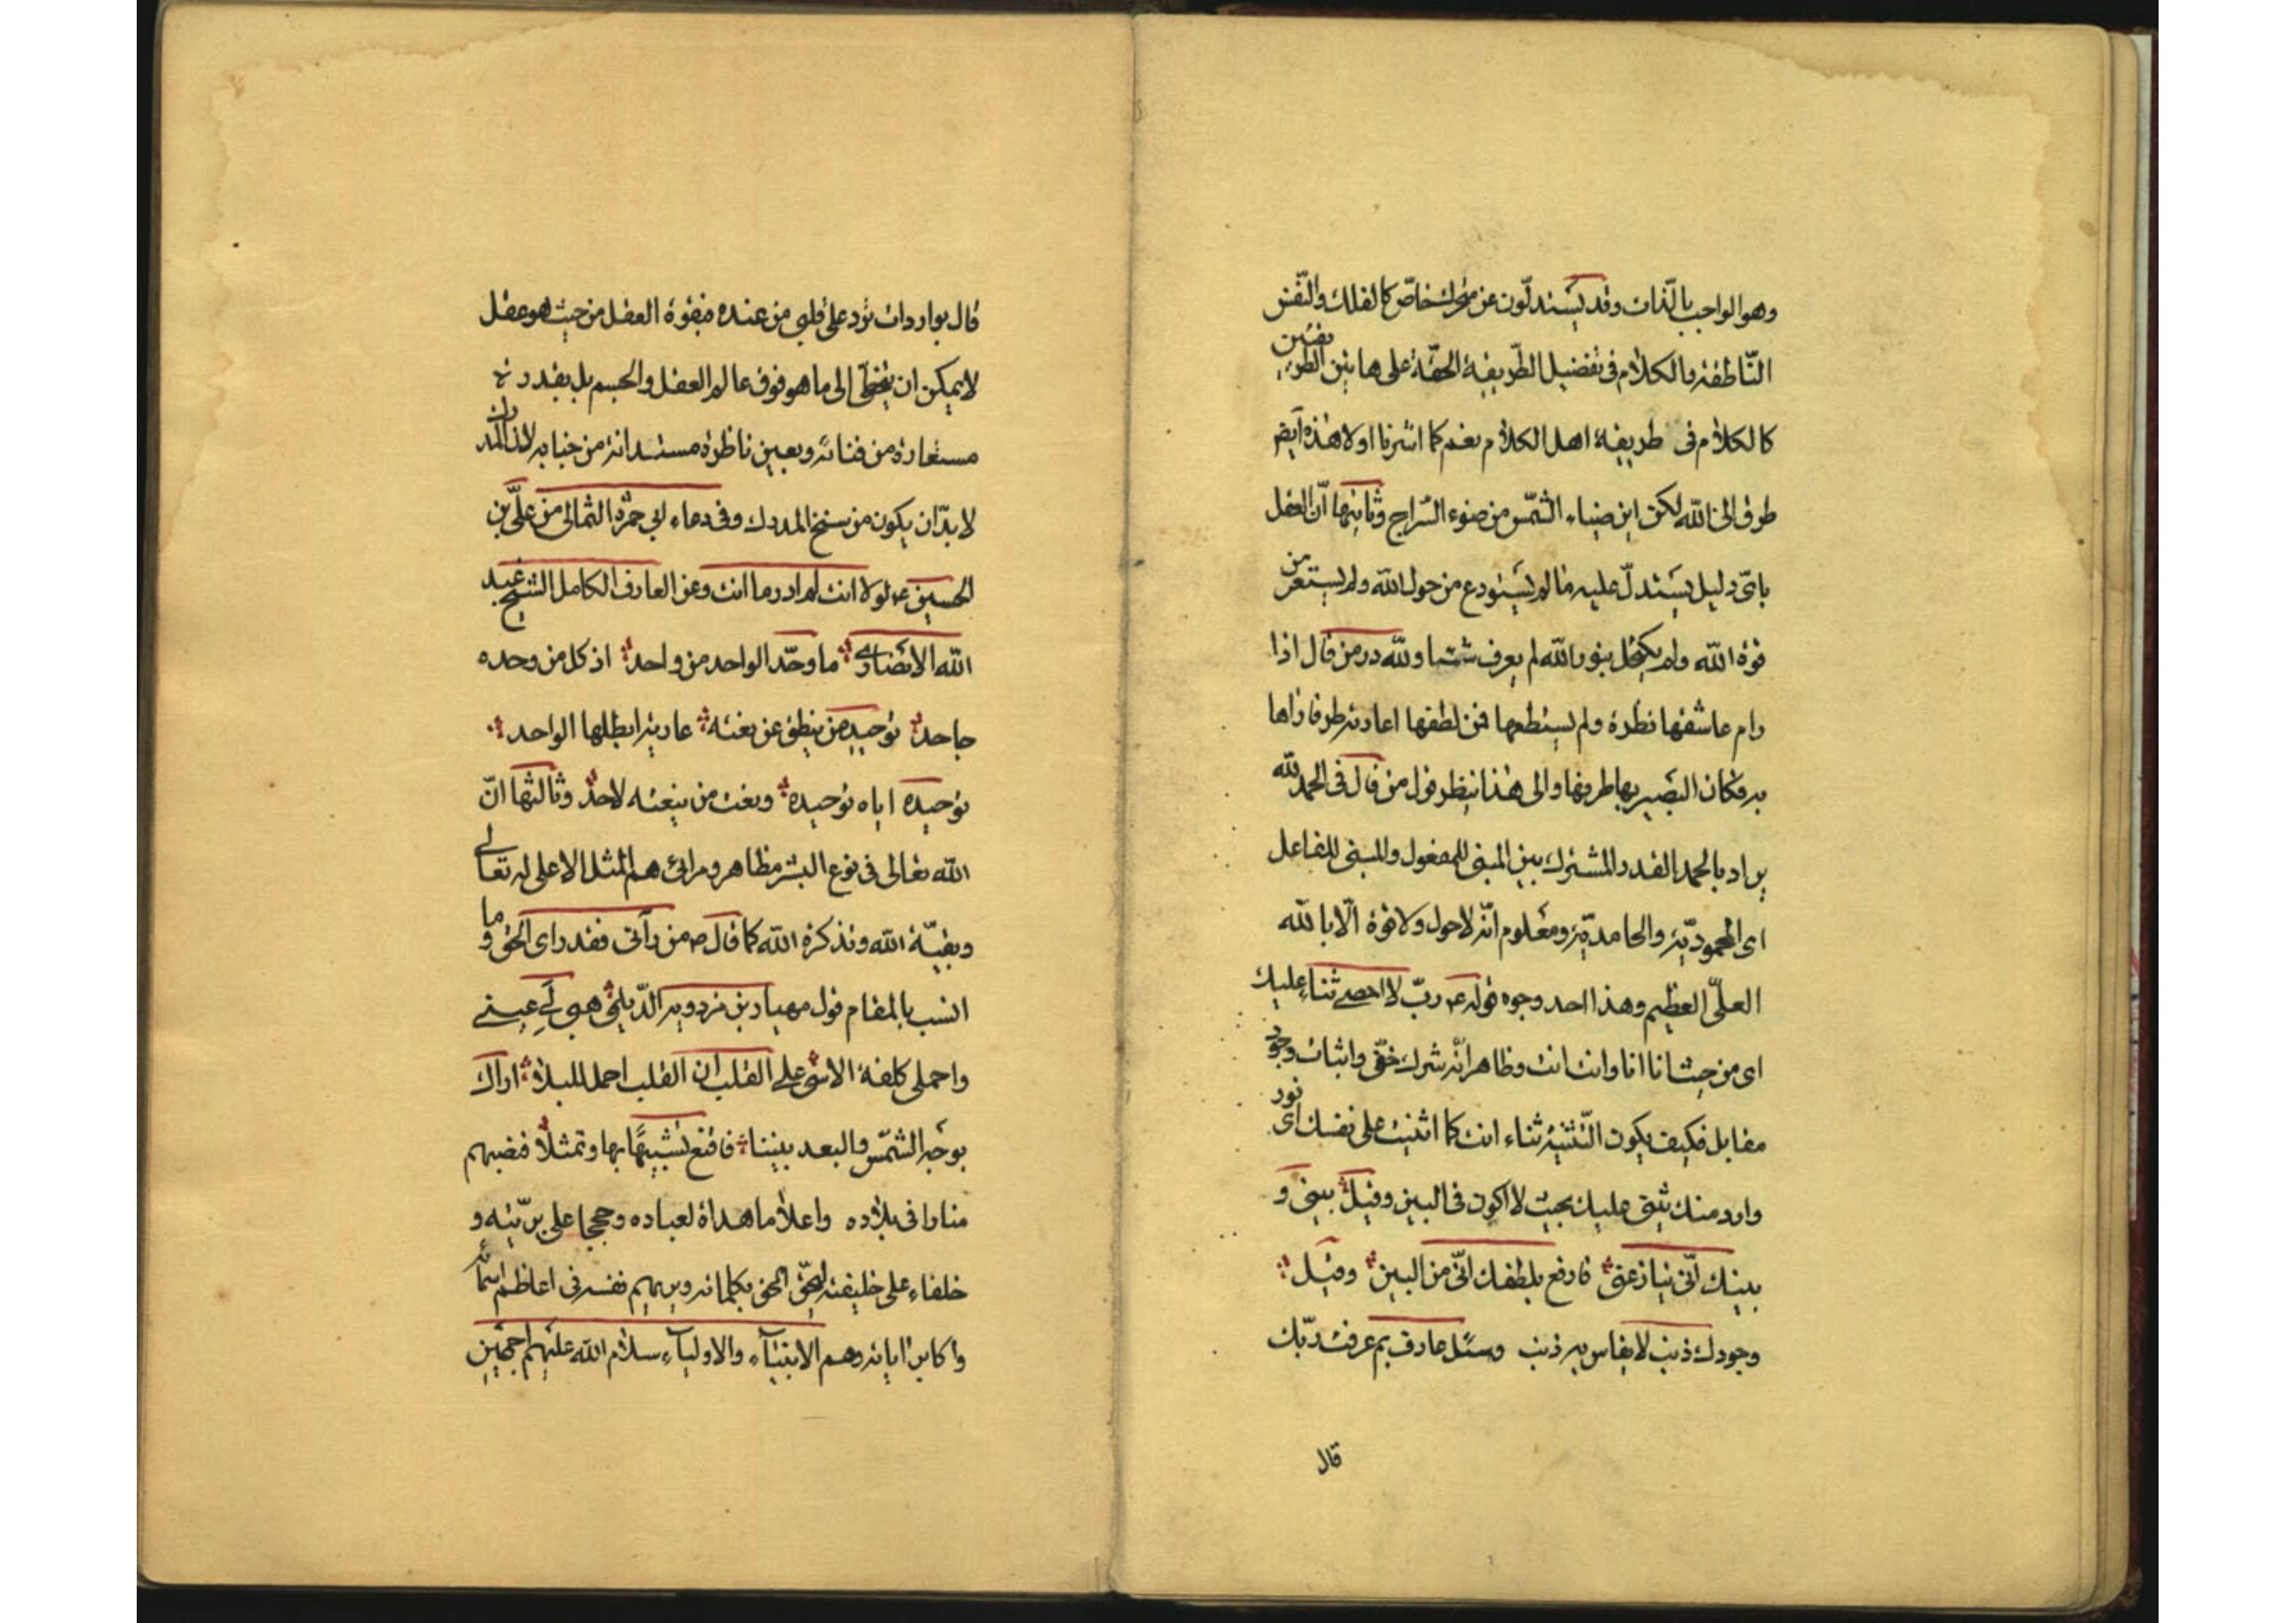 وهو الواجب بالذات وقد يستدلون عن متحرك خاص كالفلك والنفس
الناطقة والكلام في تفضيل الطريقة الحقة على هاتين الطريقتين
كالكلام في طريقة اهل الكلام نعم كما اشرنا اولا هذه ايض
طرق الى الله لكن اين ضياء الشمس من ضوء السراج وثانيها ان العقل
باى دليل يستدل عليه ما لم يستودع من حول الله ولم يستعر من
قوة الله ولم يكتحل بنور الله لم يعرف شيئا ولله در من قال اذا
رام عاشقها نظرة ولم يستطعها فمن لطفها اعارته طرفا راها
به فكان البصير بها طرفها والى هذا ينظر قول من قال في الحمد لله
يراد بالحمد القدر المشترك بين المبني للمفعول والمبني للفاعل
اى المحمودية والحامدية ومعلوم انه لا حول ولا قوة الا بالله
العلي العظيم وهذا احد وجوه قوله ع رب لا احصى ثناء عليك
اى من حيث انا انا وانت انت وظاهر انه شرك خفى واثبات وجود
مقابل فكيف يكون التثنية ثناء انت كما اثنيت على نفسك اى نور
وارد منك يثنى عليك بحيث لا اكون في البين وقيل بيني و
بينك انى ينازعنى فارفع بلطفك انى من البين وقيل
وجودك ذنب لا يقاس به ذنب وسئل عارف بم عرفت ربك
قال
قال بواردات ترد على قلبى من عنده فبقوة العقل من حيث هو عقل
لا يمكن ان يتخطى الى ما هو فوق عالم العقل والجسم بل بقدرة
مستعارة من فنائه وبعين ناظرة مستدانة من جنابه لان المدرك
لا بد ان يكون من سنخ المدرك وفي دعاء ابي حمزة الثمالى من على بن
الحسين ع لولا انت لم ادر ما انت وعن العارف الكامل الشيخ عبد
الله الانصارى ما وحد الواحد من واحد اذ كل من وحده
جاحد توحيد من ينطق عن نعته عارية ابطلها الواحد
توحيده اياه توحيده ونعت من ينعته لاحد وثالثها ان
الله تعالى في نوع البشر مظاهر ومرائى هم المثل الاعلى له تعالى
وبقية الله وتذكرة الله كما قال ص من رآنى فقد راى الحق وما
انسب بالمقام قول مهيار بن مرزويه الديلمى هبى لى عينى
واحملى كلفة الاسى على القلب ان القلب احمل للبلا اراك
بوجه الشمس والبعد بيننا فاقنع تشبيها بها وتمثلا فنصبهم
منارا في بلاده واعلاما هداة لعباده وحججا على بريته و
خلفاء على خليقته ليحق الحق بكلماته ويريهم نفسه في اعاظم اسمائه
واكابر اياته وهم الانبياء والاولياء سلام الله عليهم اجمعين